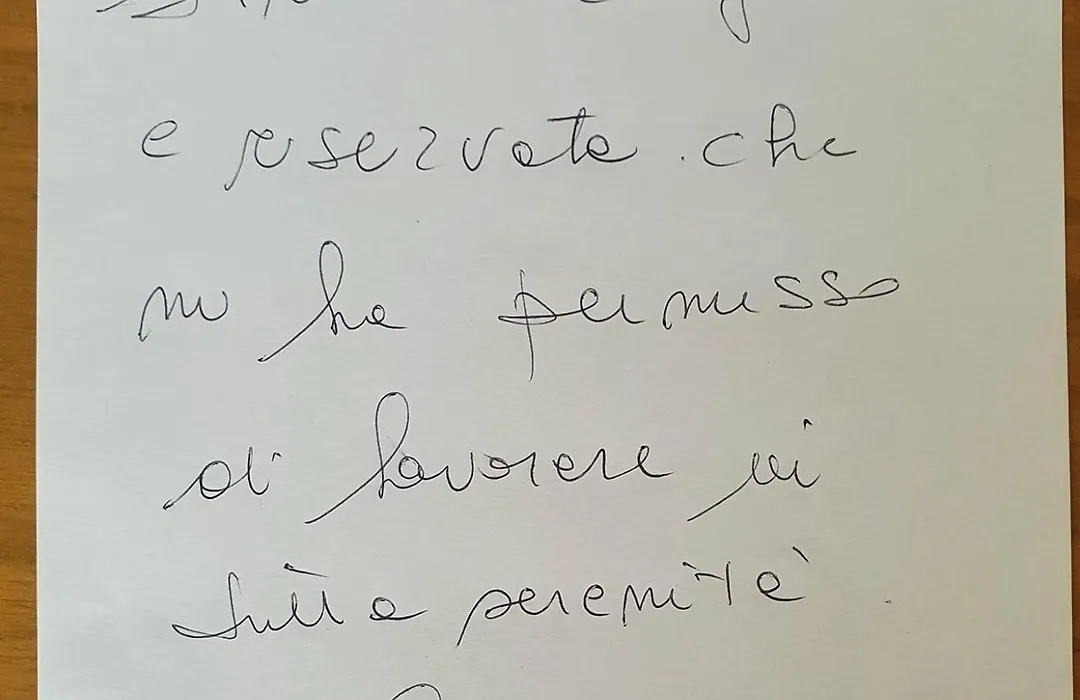 e riservata che
mi ha permesso
di lavorare in
tutta serenità.